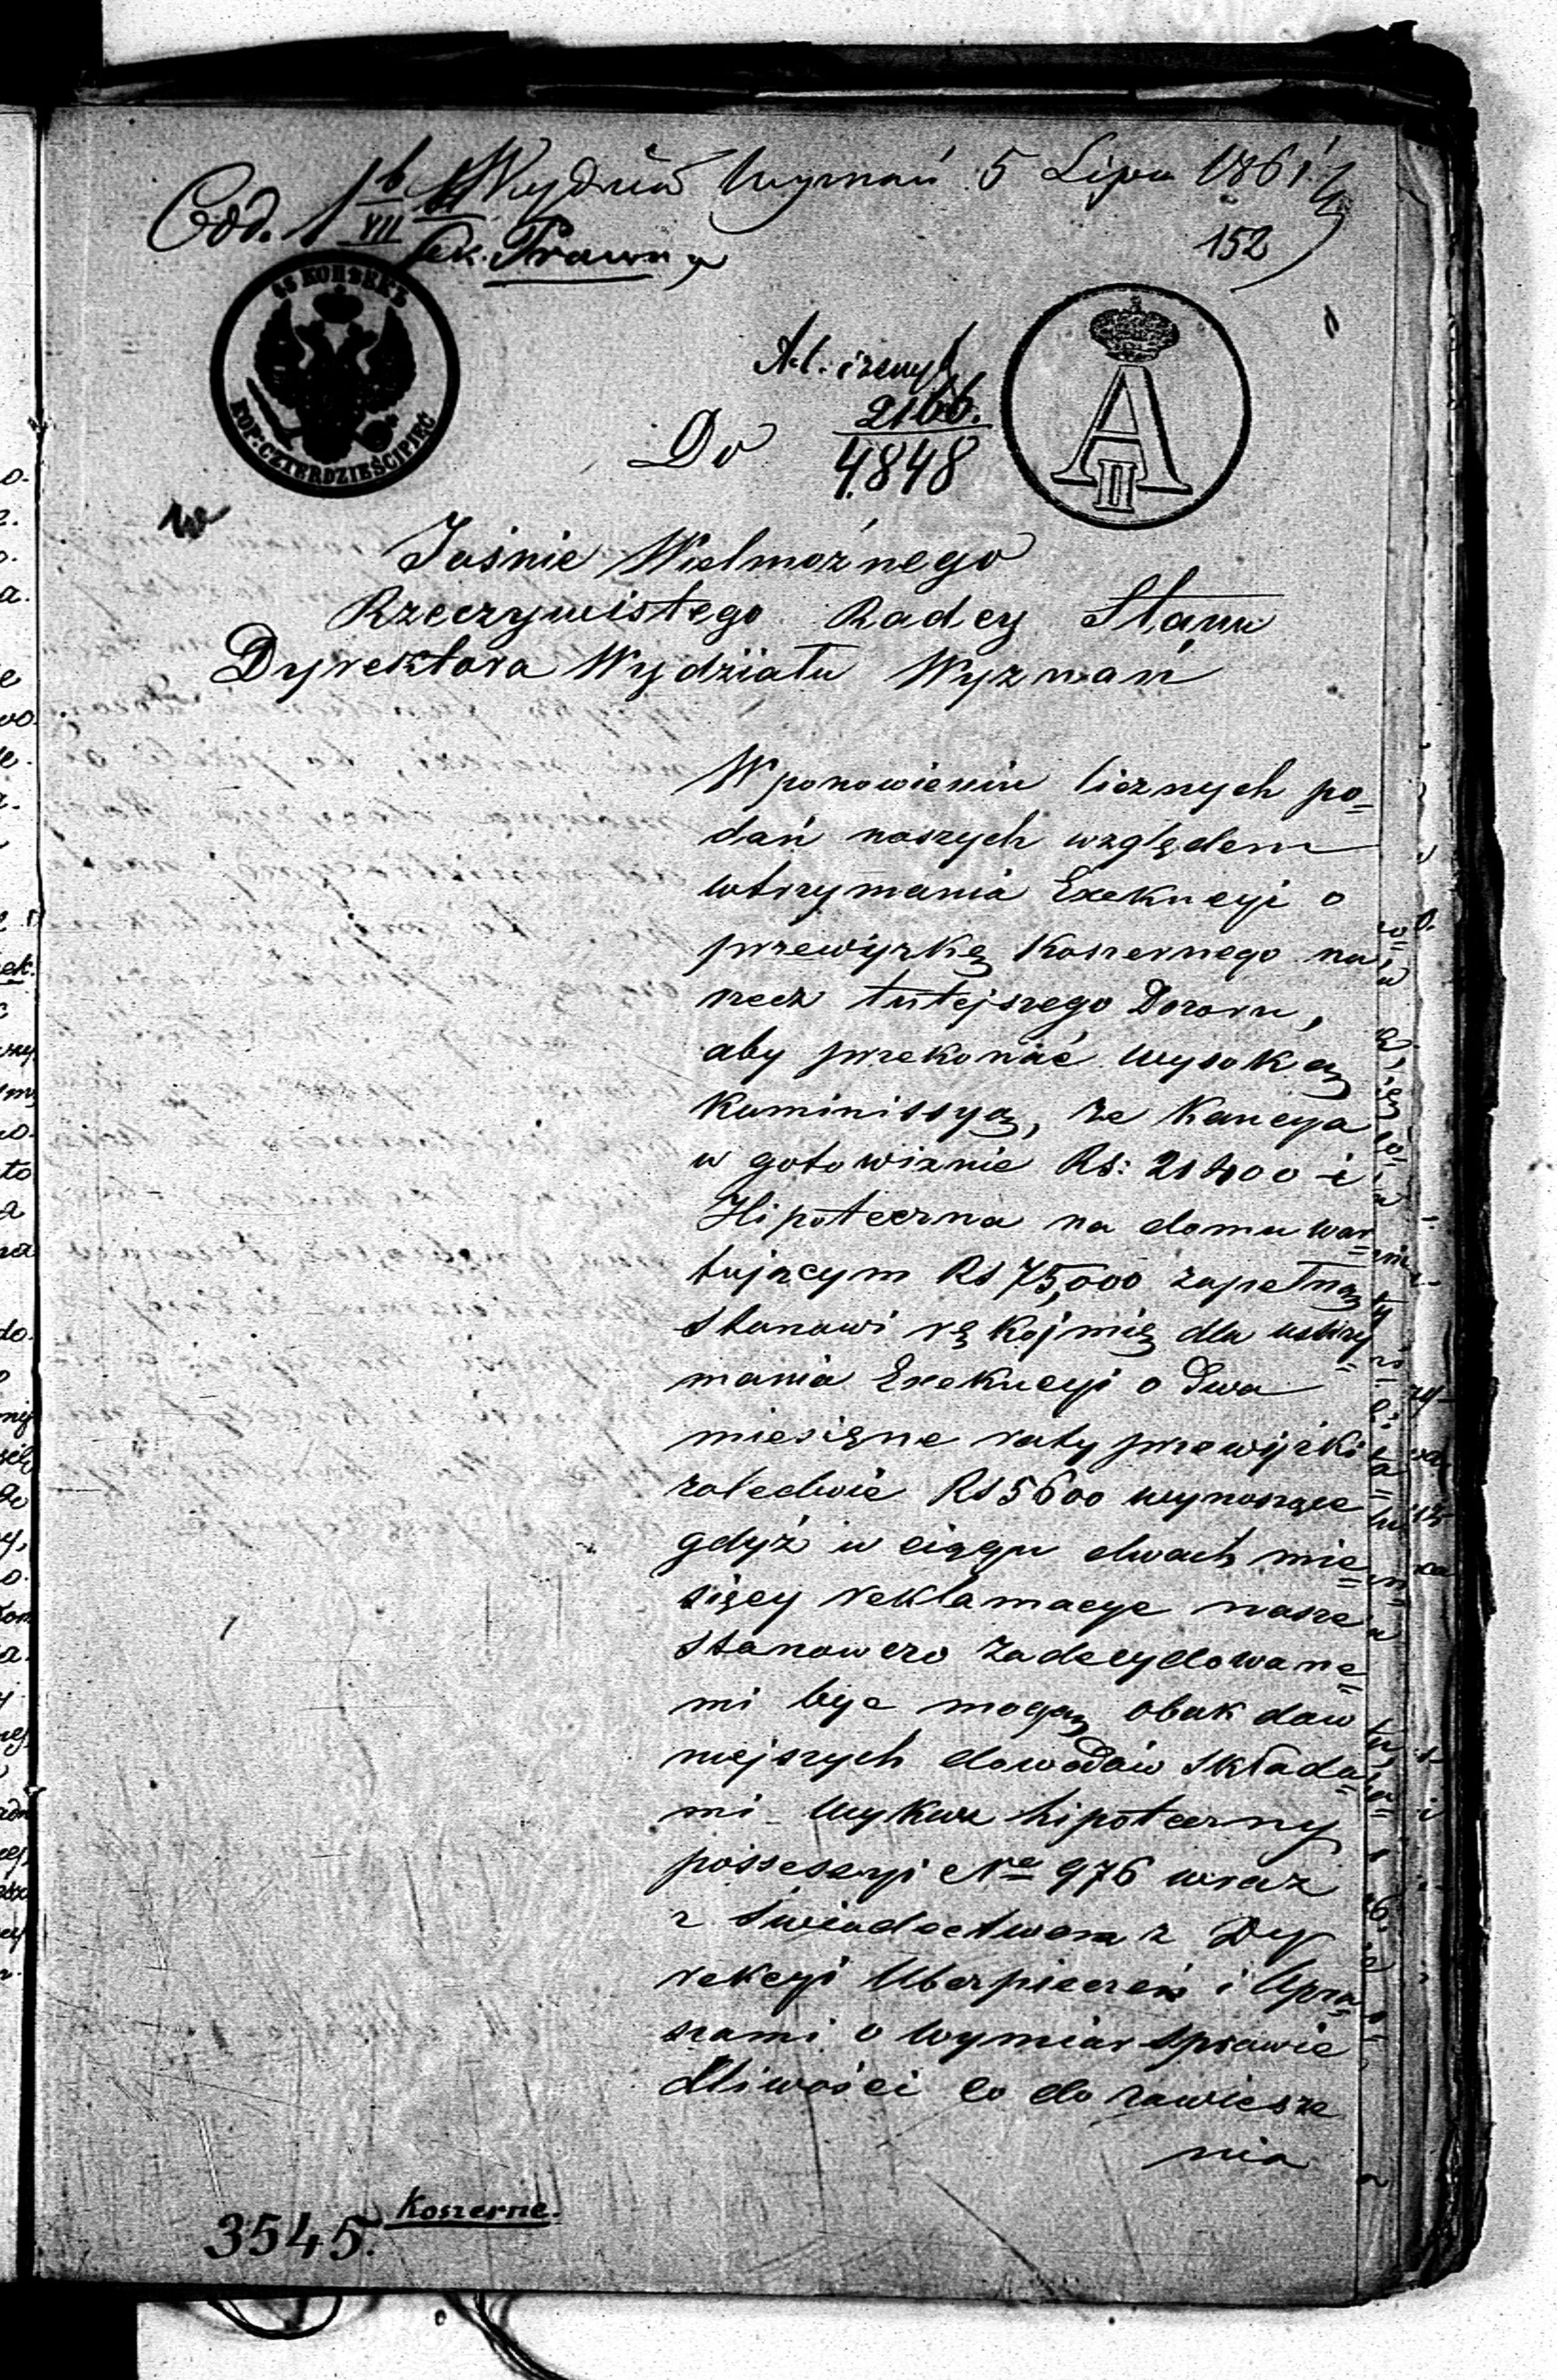 Odd. 6/VII Wydział Wyznań 5 Lipca 1861
Sek. Prawna
152
45 КОПѢЕКЪ
KOP: CZTERDZIEŚCI PIĘĆ
A II
2166.
4848
Do
Jaśnie Wielmożnego
Rzeczywistego Radcy Stanu
Dyrektora Wydziału Wyznań
W ponowieniu licznych po=
dań naszych względem
wtrzymania Exekucyi o
przewyżkę Koszernego na
rzecz tutejszego Dozoru,
aby przekonać wysoką
Kommissyą, że Kaucya
w gotowiznie Rs: 21400 i
Hipoteczna na domu war=
tującym Rs 75,000 zupełną
stanowi rękojmię dla ustrzy=
mania Exekucyi o dwa
miesięczne raty przewyżki
zaledwie Rs 5600 wynoszące
gdyż w ciągu dwach mie=
sięcy reklamacye nasze
stanowczo zadecydowane=
mi być mogą, obok daw
niejszych dowodów składa=
mi wykaz hipoteczny
possesyi No 976 wraz
z świadectwem z Dy
rekcyi Ubezpieczeń i Upra=
szami o wymiar sprawie
dliwości co do zawiesze
nia
3545. Koszerne.